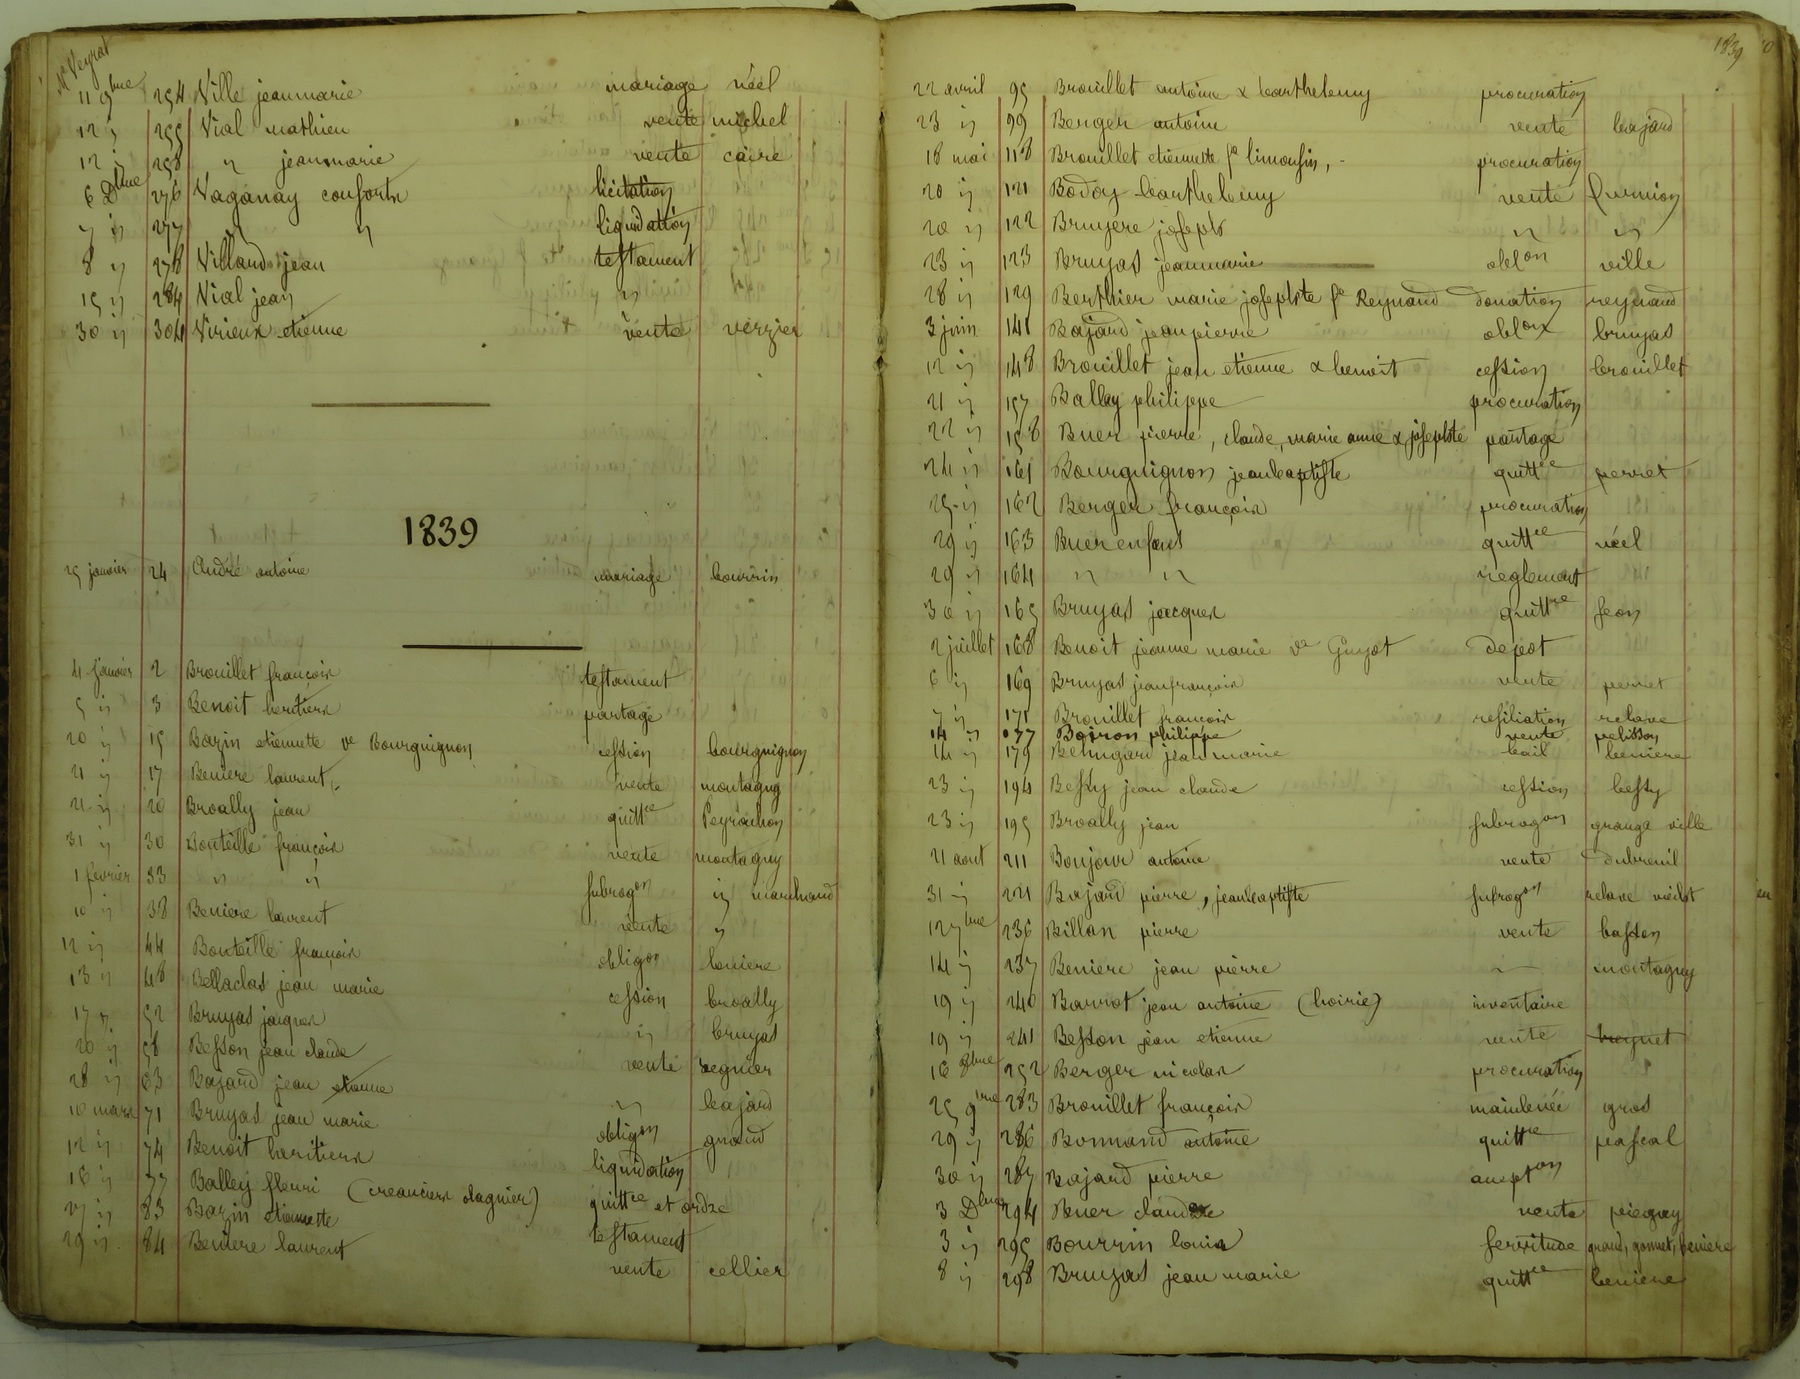 Me Veyrat
11 9bre 254 Ville jeanmarie mariage néel
12 ij 255 Vial mathieu vente michel
12 ij 258 " jeanmarie vente caire
6 Dbre 276 Vaganay consorts licitation
7 ij 277 " " liquidation
8 ij 278 Villand jean testament
15 ij 284 Vial jean "
30 ij 304 Virieux etienne vente verzier
1839
25 janvier 24 André antoine mariage bourrin
4 janvier 2 Brouillet françois testament
5 ij 3 Benoit heritiers partage
20 ij 15 Bazin etiennette ve Bourguignon cession bourguignon
21 ij 17 Beniere laurent vente montagny
21 ij 20 Broally jean quittce Peyrachon
31 ij 30 Bouteille françois vente montagny
1 fevrier 33 " " subrogon ij marchand
10 ij 38 Beniere laurent vente "
12 ij 44 Bouteille françois obligon beniere
13 ij 48 Bellaclas jean marie cession broally
17 ij 52 Bruyas jacques ij bruyas
20 ij 58 Besson jean claude vente regnier
28 ij 63 Bajard jean etienne " bajard
10 mars 71 Bruyas jean marie obligon guand
12 ij 74 Benoit heritiers liquidation
18 ij 77 Balley fleuri (creanciers olagnier) quittce et ordre
27 ij 83 Bazin etiennette testament
29 ij 84 Beniere laurent vente cellier
1839
22 avril 95 Brouillet antoine & barthelemy procuration
23 ij 99 Berger antoine vente bajard
18 mai 118 Brouillet etiennette fe limousin, - procuration
20 ij 121 Bodoy barthelemy vente
20 ij 122 Bruyere joseph " "
23 ij 123 Bruyas jeanmarie oblon ville
28 ij 129 Berthier marie josephte fe Reynaud donation reynaud
3 juin 141 Bajard jeanpierre oblon bruyas
12 ij 148 Brouillet jean etienne & benoit cession brouillet
21 ij 157 Balley philippe procuration
22 ij 158 Buer pierre, claude, marie anne & josephte partage
24 ij 161 Bourguignon jeanbaptiste quittce perret
25 ij 162 Berger françois procuration
29 ij 163 Buer enfans quittce néel
29 ij 164 " " reglement
30 ij 165 Bruyas jacques quittce jeon
2 juillet 168 Benoit jeanne marie ve Guyot depot
6 ij 169 Bruyas jeanfrançois vente perret
7 ij 171 Brouillet françois resiliation relave
14 ij 177 Boiron philippe vente pelisson
14 ij 179 jean marie bail beniere
23 ij 194 Bessy jean claude cession bessy
23 ij 195 Broally jean subrogon grange ville
21 aout 211 Boujour antoine vente Dubreuil
31 ij 221 Bajard pierre, jeanbaptiste subrogon relave
12 7bre 236 Billan pierre vente basson
14 ij 237 Beniere jean pierre " montagny
19 ij 240 Barrot jean antoine (hoirie) inventaire
19 ij 241 Besson jean etienne vente
16 8bre 252 Berger nicolas procuration
25 9bre 283 Brouillet françois mainlevée gros
29 ij 286 Bonnand antoine quittce pascal
30 ij 287 Bajard pierre accepton
3 Dbre 294 Buer claude vente piegay
3 ij 295 Bourrin louis servitude grand, gonnet, beniere
8 ij 298 Bruyas jean marie quittce beniere